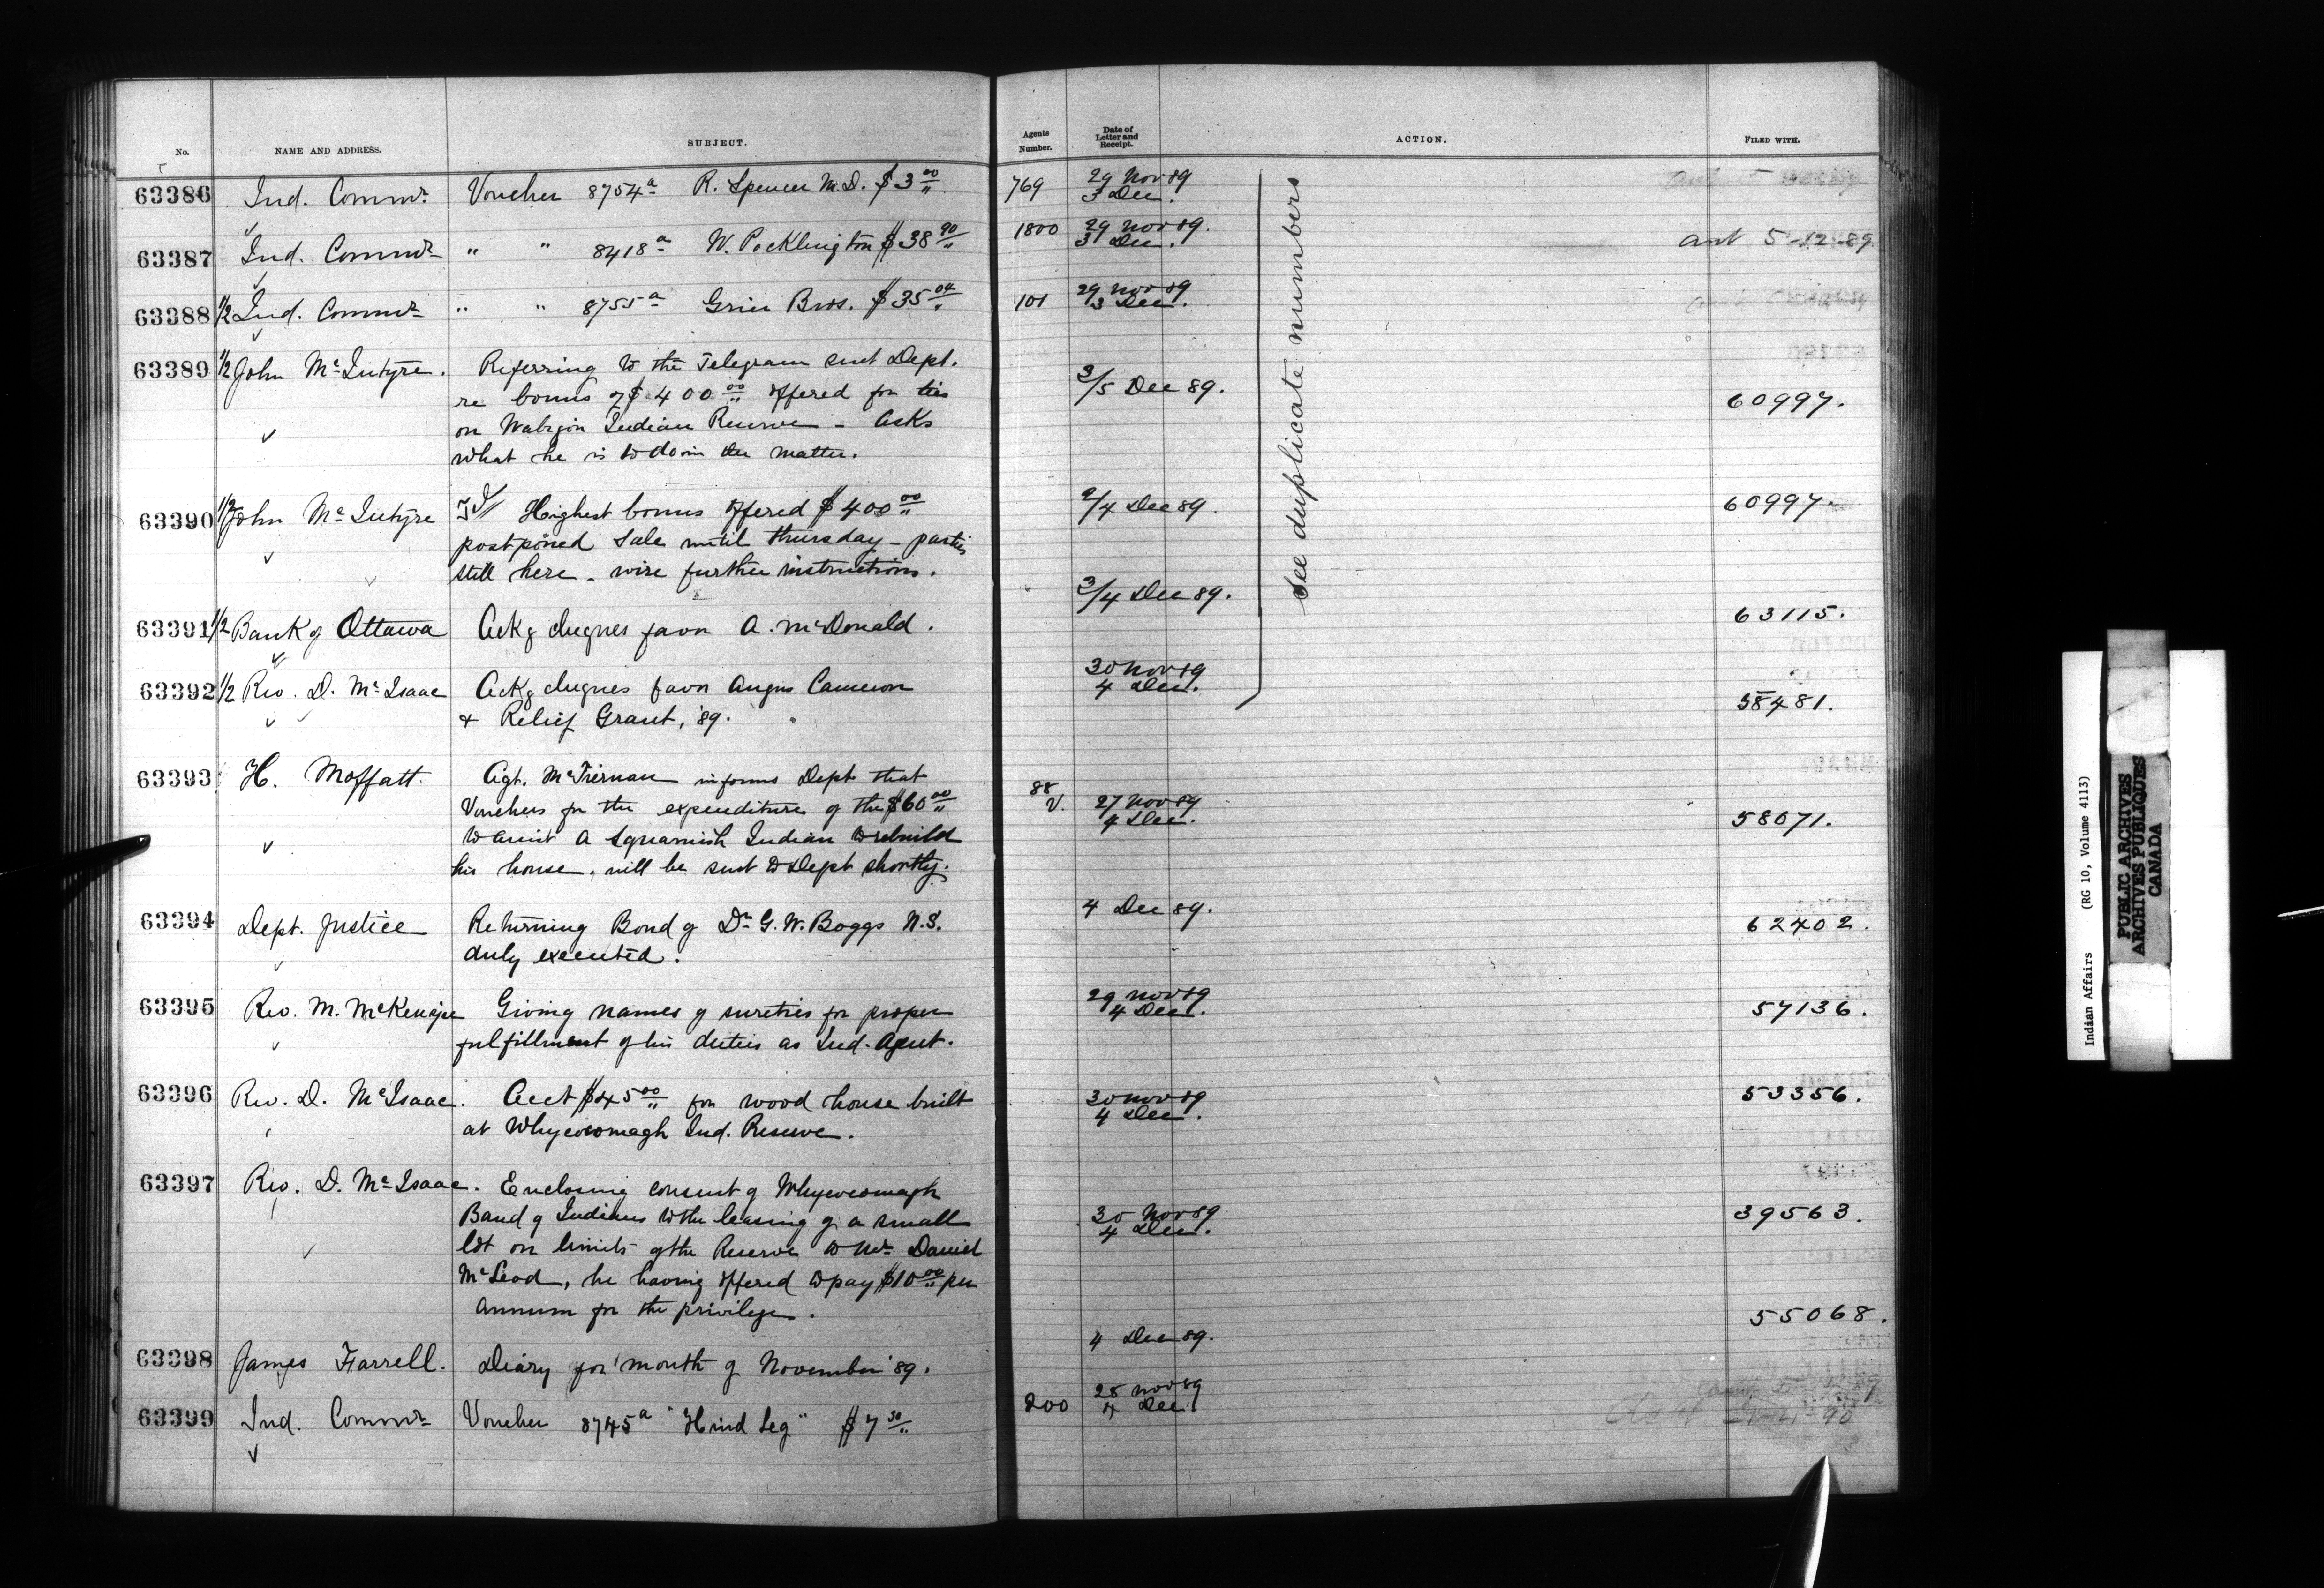 No. NAME AND ADDRESS. SUBJECT. Agents Number. Date of Letter and Receipt. ACTION. FILED WITH.
63386 Ind. Commr. Voucher 8754a R. Spencer M.D. $3 00 769 29 Nov 89
3 Dec.
63387 Ind. Commr. " " 8418a W. Pocklington $38 90 1800 29 Nov 89.
3 Dec. ant 5-12-89
63388 1/2 Ind. Commr. " " 8755a Grier Bros. $35 04 101 29 Nov 89
3 Dec.
see duplicate numbers
63389 1/2 John McIntyre. Referring to the Telegram sent Dept.
re bonus of $400 00 offered for ties 3/5 Dec 89. 60997.
on Wabigon Indian Reserve - Asks
what he is to do in the matter.
63390 1/2 John McIntyre Highest bonus offered $400 00 2/4 Dec 89. 60997.
postponed sale until thursday - parties
still here - wire further instructions.
63391 1/2 Bank of Ottawa Ackg cheques favor A. McDonald. 3/4 Dec 89. 63115.
63392 1/2 Rev. D. McIsaac Ackg cheques favor Angus Cameron 30 Nov 89
4 Dec.
& Relief Grant, '89. 58481.
63393 H. Moffatt. Agt. McTiernan informs Dept that
Vouchers for the expenditure of the $60 00 88 V. 27 Nov 89
4 Dec. 58071.
to assist a Squamish Indian to rebuild
his house, will be sent to Dept shortly.
63394 Dept. Justice Returning Bond of Dr. G. W. Boggs N.S. 4 Dec 89. 62402.
duly executed.
63395 Rev. M. McKenzie Giving names of sureties for proper 29 Nov 89
4 Dec. 57136.
fulfillment of his duties as Ind. Agent.
63396 Rev. D. McIsaac. Acct $45 00 for wood house built 30 Nov 89
4 Dec. 53356.
at Whycocomagh Ind. Reserve.
63397 Rev. D. McIsaac. Enclosing consent of Whycocomagh
Band of Indians to the leasing of a small 30 Nov 89
4 Dec. 39563.
lot on limits of the Reserve to Mr. Daniel
McLeod, he having offered to pay $10 00 per
annum for the privilege.
63398 James Farrell. Diary for month of November '89. 4 Dec 89. 55068.
63399 Ind. Commr. Voucher 8745a "Hind Leg" $7 50 200 28 Nov 89
4 Dec
Indian Affairs (RG 10, Volume 4113)
PUBLIC ARCHIVES
ARCHIVES PUBLIQUES
CANADA